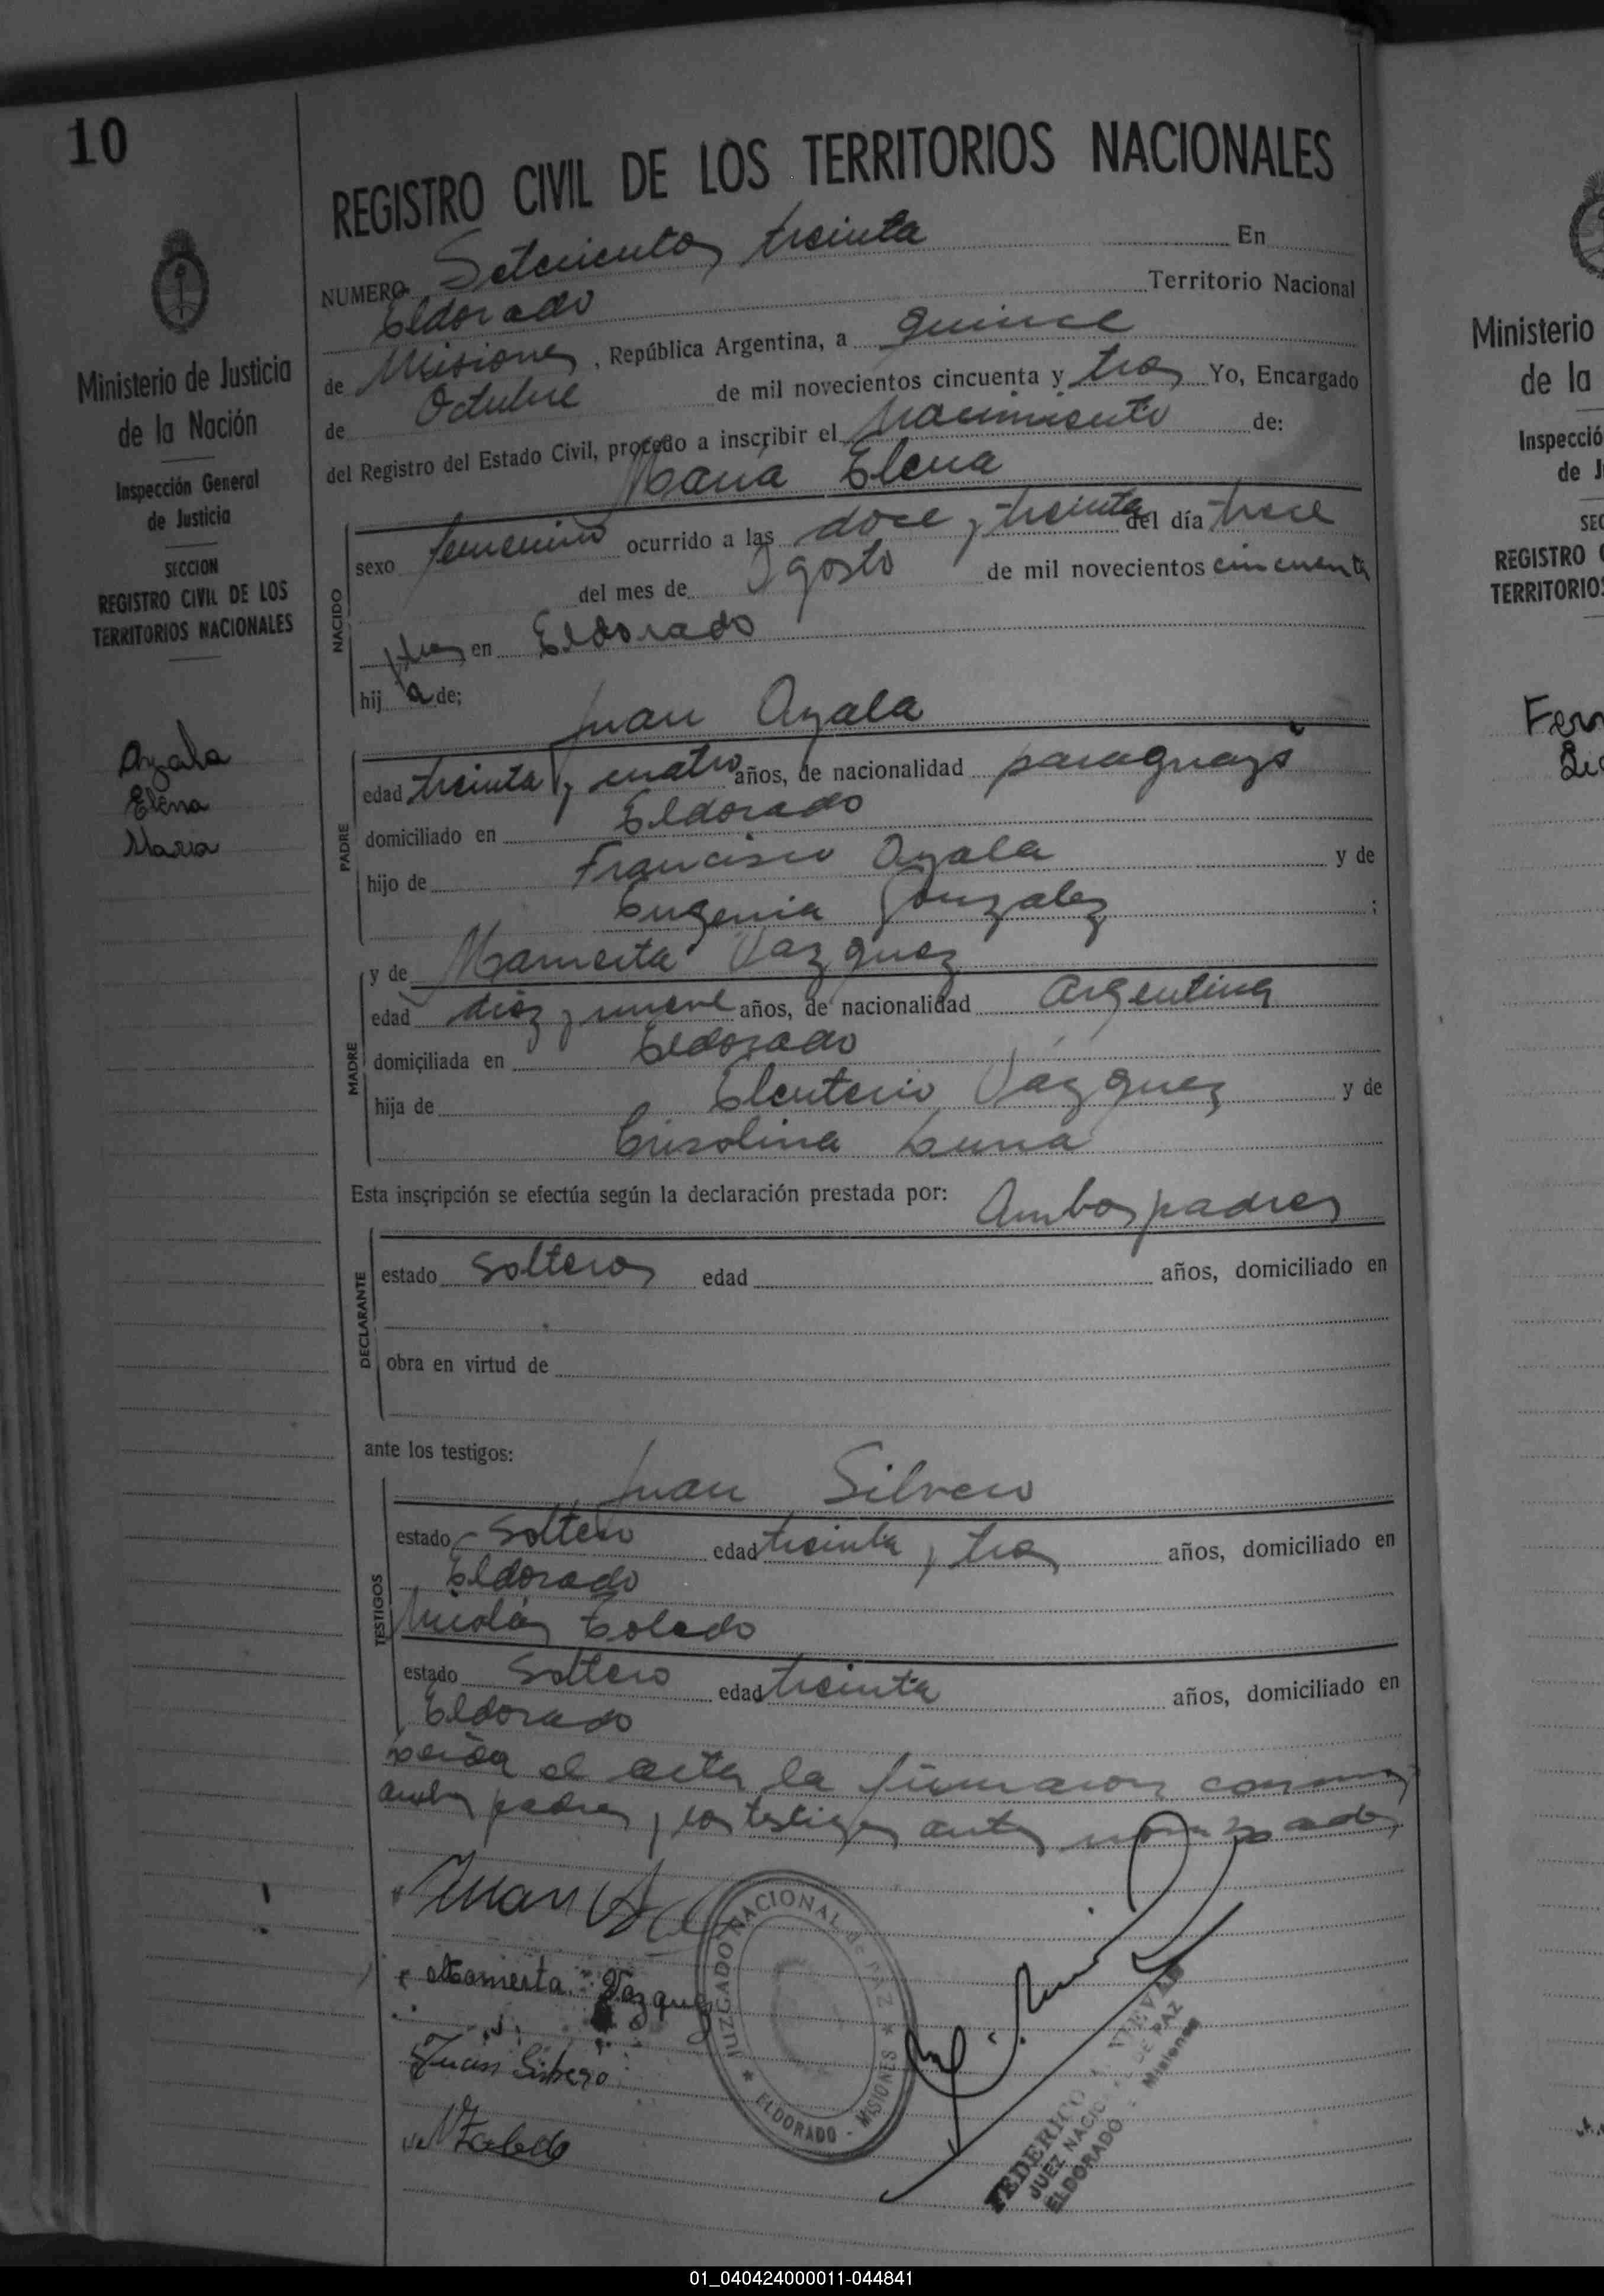 10
REGISTRO CIVIL DE LOS TERRITORIOS NACIONALES
NUMERO Setecientos treinta En
Eldorado Territorio Nacional
de Misiones, República Argentina, a quince
de Octubre de mil novecientos cincuenta y tres Yo, Encargado
del Registro del Estado Civil, procedo a inscribir el nacimiento de:
Maria Elena
NACIDO
sexo femenino ocurrido a las doce y treinta del día trece
del mes de Agosto de mil novecientos cincuenta
y tres en Eldorado
hij a de;
Juan Ayala
PADRE
edad treinta y cuatro años, de nacionalidad paraguayo
domiciliado en Eldorado
hijo de Francisco Ayala y de
Eugenia Gonzalez ;
y de Mamerta Vazquez
MADRE
edad diez y nueve años, de nacionalidad Argentina
domiciliada en Eldorado
hija de Eleuterio Vázquez y de
Crisolina Luna
Esta inscripción se efectúa según la declaración prestada por: Ambos padres
DECLARANTE
estado solteros edad años, domiciliado en
obra en virtud de
ante los testigos:
Juan Silvero
TESTIGOS
estado Soltero edad treinta y tres años, domiciliado en
Eldorado
Nicolás Toledo
estado Soltero edad treinta años, domiciliado en
Eldorado
Leida el acta la firmaron
ambos padres y los testigos
Juan
Mamerta Vazquez
Juan Silbero
N Toledo
JUZGADO NACIONAL de PAZ
ELDORADO - MISIONES
FEDERICO
JUEZ NACIONAL DE PAZ
ELDORADO - Misiones
Ministerio de Justicia
de la Nación
Inspección General
de Justicia
SECCION
REGISTRO CIVIL DE LOS
TERRITORIOS NACIONALES
Ayala
Elena
Maria
Ministerio
de la
Inspecció
de J
SEC
REGISTRO
TERRITORIOS
Fern
01_040424000011-044841